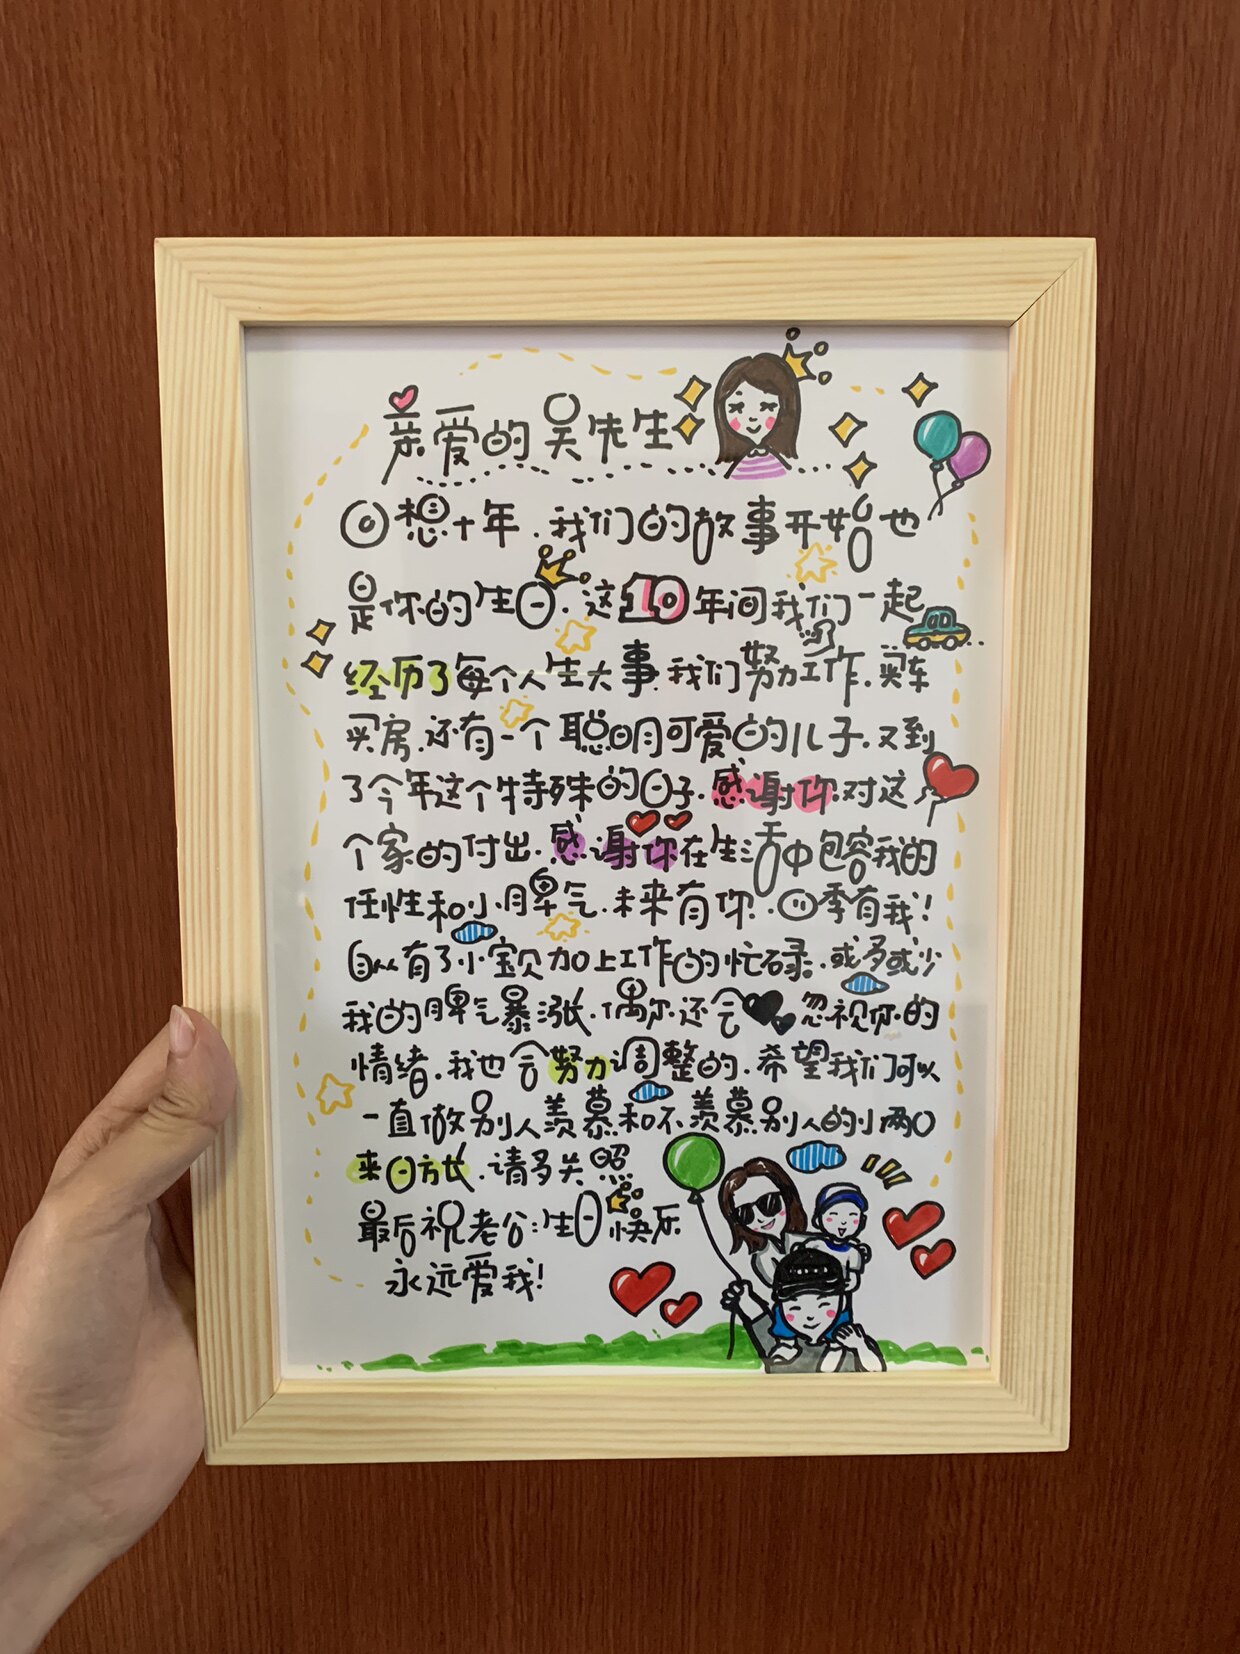 亲爱的吴先生
回想十年.我们的故事开始也
是你的生日.这10年间我们一起
经历了每个人生大事.我们努力工作.买车
买房.还有一个聪明可爱的儿子.又到
了今年这个特殊的日子.感谢你对这
个家的付出.感谢你在生活中包容我的
任性和小脾气.未来有你.四季有我!
自从有了小宝贝加上工作的忙碌.或多或少
我的脾气暴涨.偶尔还会忽视你的
情绪.我也会努力调整的.希望我们可以
一直做别人羡慕和不羡慕别人的小两口
来日方长.请多关照
最后祝老公:生日快乐
永远爱我!